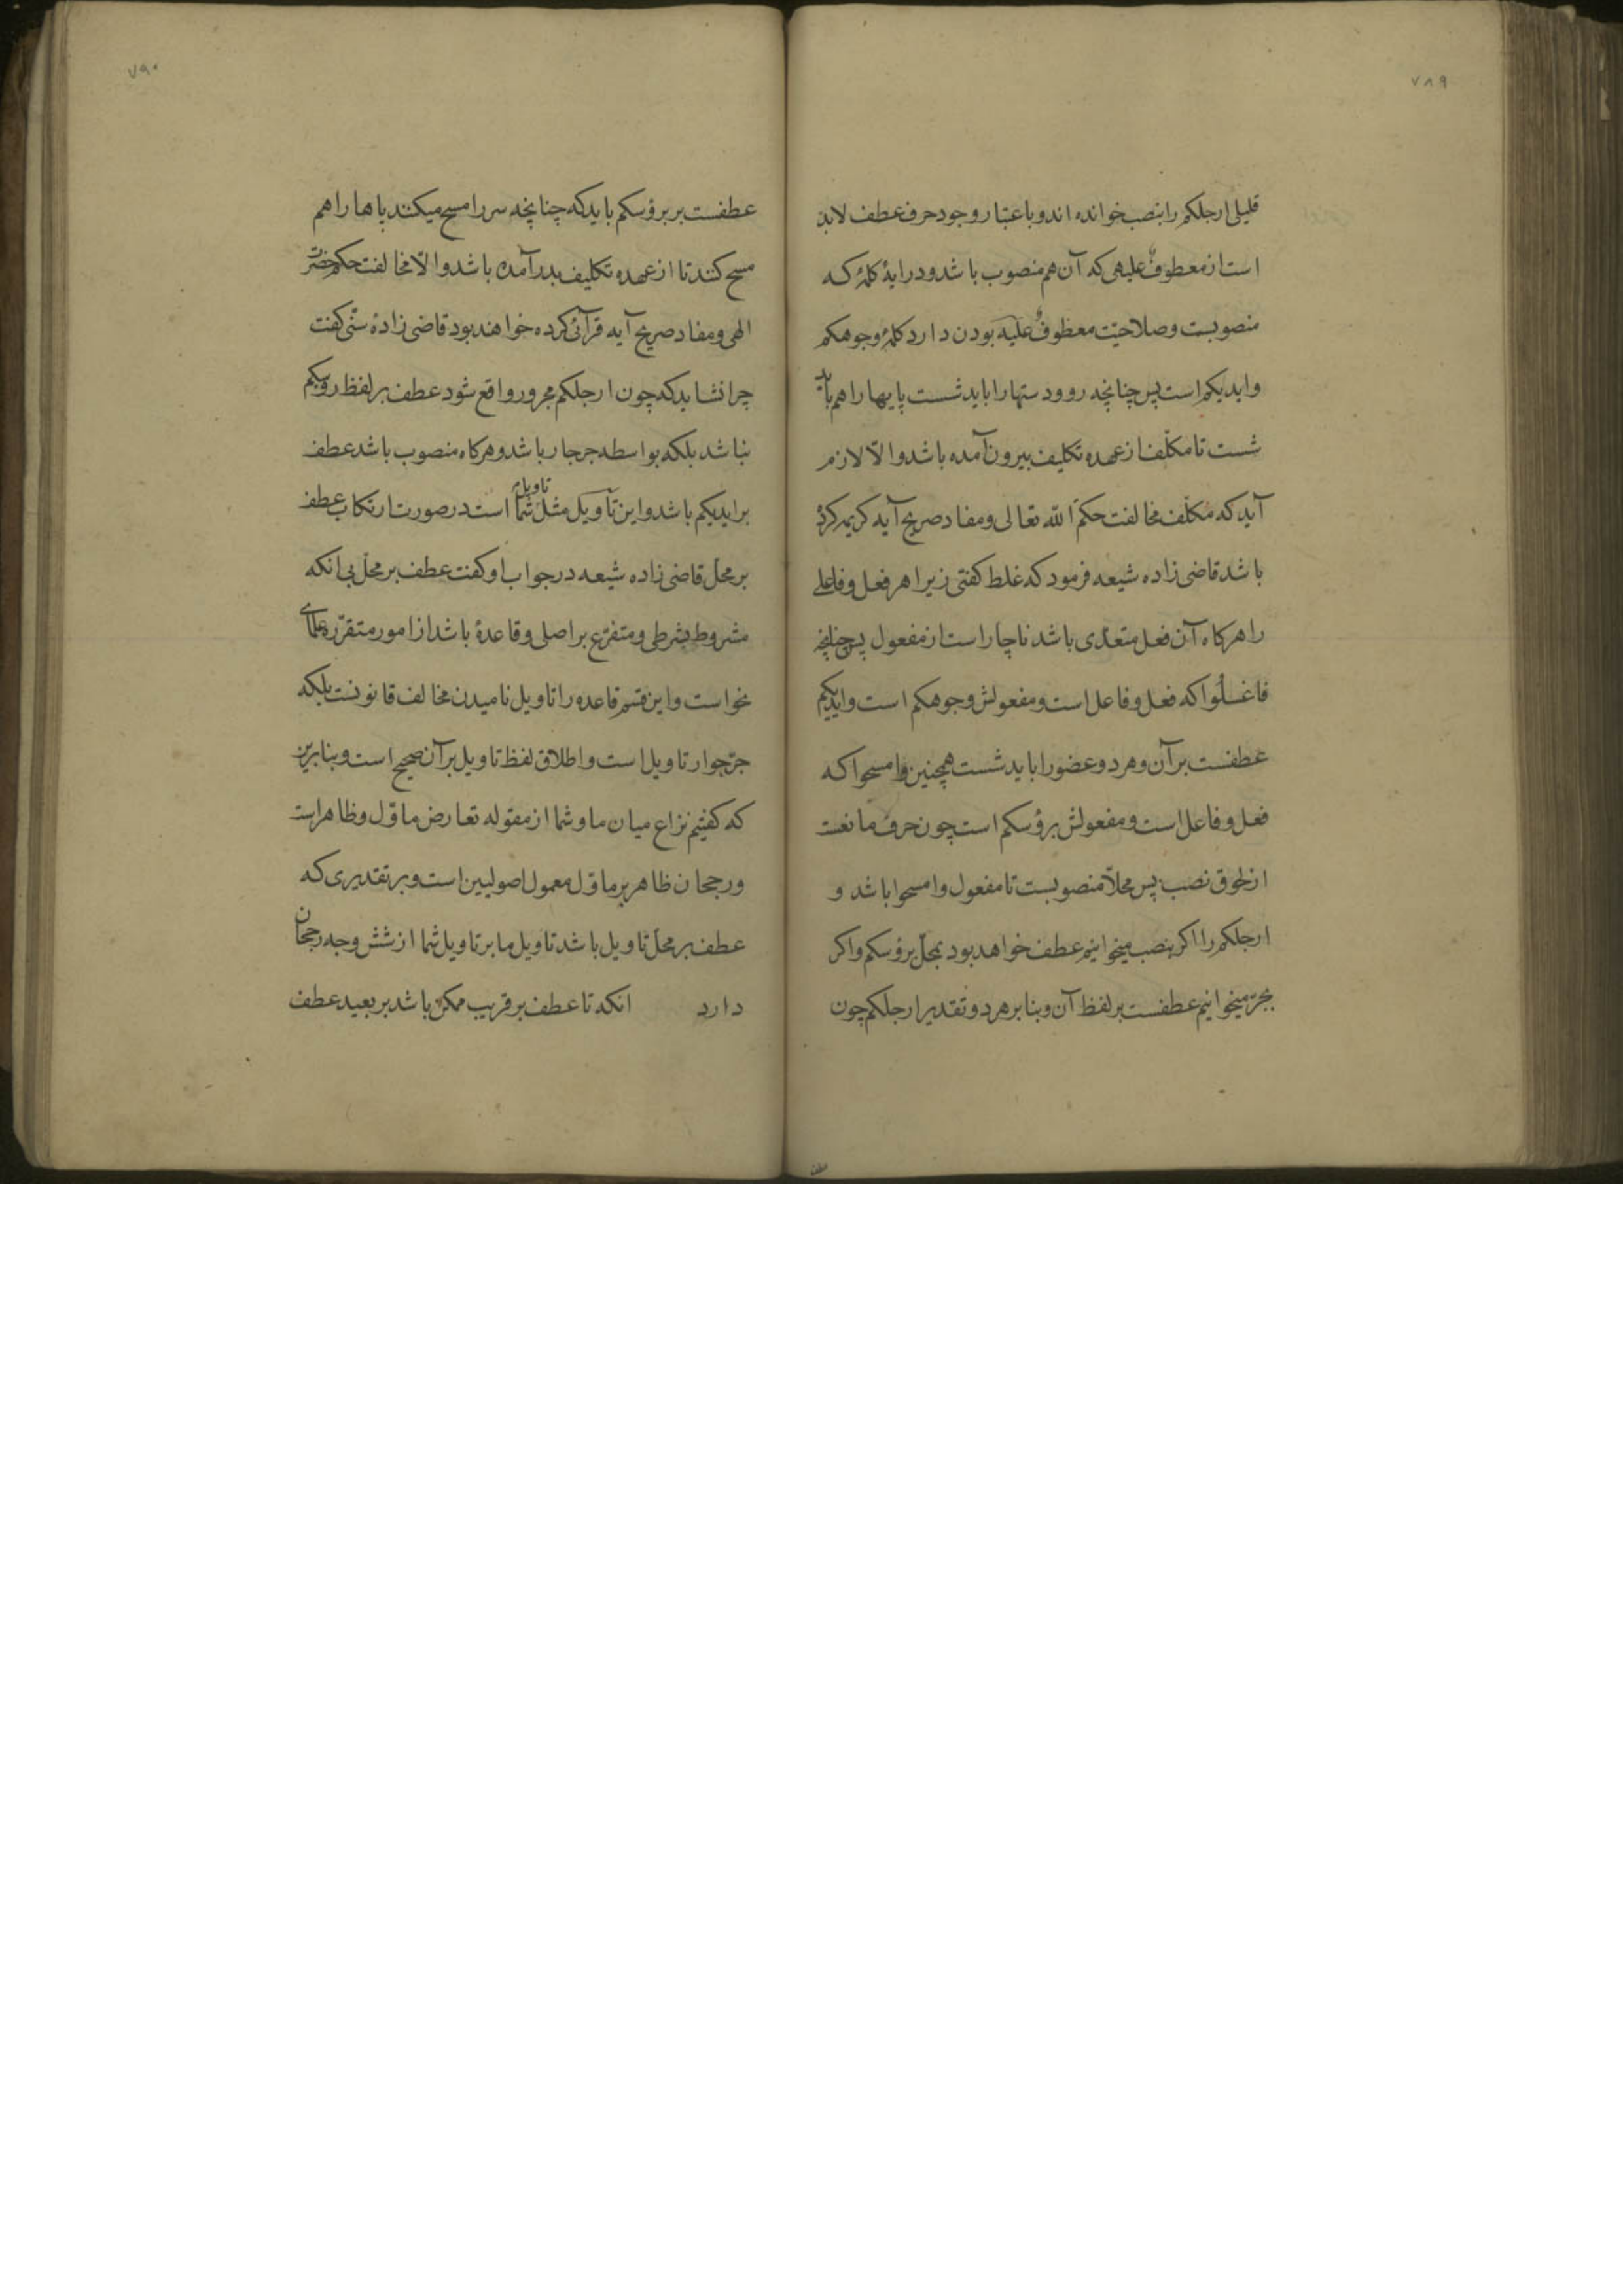 ۷۸۹
قلیلی ارجلکم را بنصب خوانده اند و باعتبار وجود حرف عطف لابد
است از معطوفٌ علیهی که آن هم منصوب باشد و در ایهٔ کلمهٔ که
منصوبست و صلاحیت معطوفٌ علیه بودن دارد کلمهٔ وجوهکم
وایدیکم است پس چنانچه رو و دستها را باید شست پایها را هم باید
شست تا مکلّف از عهده تکلیف بیرون آمده باشد والّا لازم
آید که مکلّف مخالفت حکم الله تعالی و مفاد صریح آیه کریمه کرده
باشد قاضی زاده شیعه فرمود که غلط کفتی زیرا هر فعل و فاعلی
را هرکاه آن فعل متعدّی باشد ناچار است از مفعول پس چنانچه
فاغسلُوا که فعل و فاعل است و مفعولش وجوهکم است وایدیکم
عطفست بر آن و هر دو عضو را باید شست همچنین وامسحوا که
فعل و فاعل است و مفعولش برؤسکم است چون حرف مانعست
از لحوق نصب پس محلّاً منصوبست تا مفعول وامسحوا باشد و
ارجلکم را اکر بنصب میخوانیم عطف خواهد بود بمحلّ برؤسکم واکر
بجرّ میخوانیم عطفست بر لفظ آن و بنابر هر دو تقدیر ارجلکم چون
عطفست
۷۹۰
عطفست بر برؤسکم باید که چنانچه سر را مسح میکنند پاها را هم
مسح کنند تا از عهده تکلیف بدر آمده باشد والّا مخالفت حکم حضرت
الهی و مفاد صریح آیه قرآنی کرده خواهند بود قاضی زادهٔ سنّی کفت
چرا نشاید که چون ارجلکم مجرور واقع شود عطف بر لفظ روسکم
نباشد بلکه بواسطه جرجار باشد و هرکاه منصوب باشد عطف
بر ایدیکم باشد و این تأویل مثل تاویل شما است در صورت ارتکاب عطف
بر محلّ قاضی زاده شیعه در جواب او کفت عطف بر محلّ بی انکه
مشروط بشرطی و متفرّع بر اصلی و قاعدهٔ باشد از امور متقرّره علمای
نحو است و این قسم قاعده را تاویل نامیدن مخالف قانونست بلکه
جرّ جوار تاویل است و اطلاق لفظ تاویل بر آن صحیح است و بنابرین
که کفتیم نزاع میان ما و شما از مقوله تعارض ماوّل و ظاهر است
و رجحان ظاهر بر ماوّل معمول اصولیین است و بر تقدیری که
عطف بر محلّ تاویل باشد تاویل ما بر تاویل شما از شش وجه رجحان
دارد انکه تا عطف بر قریب ممکن باشد بر بعید عطف